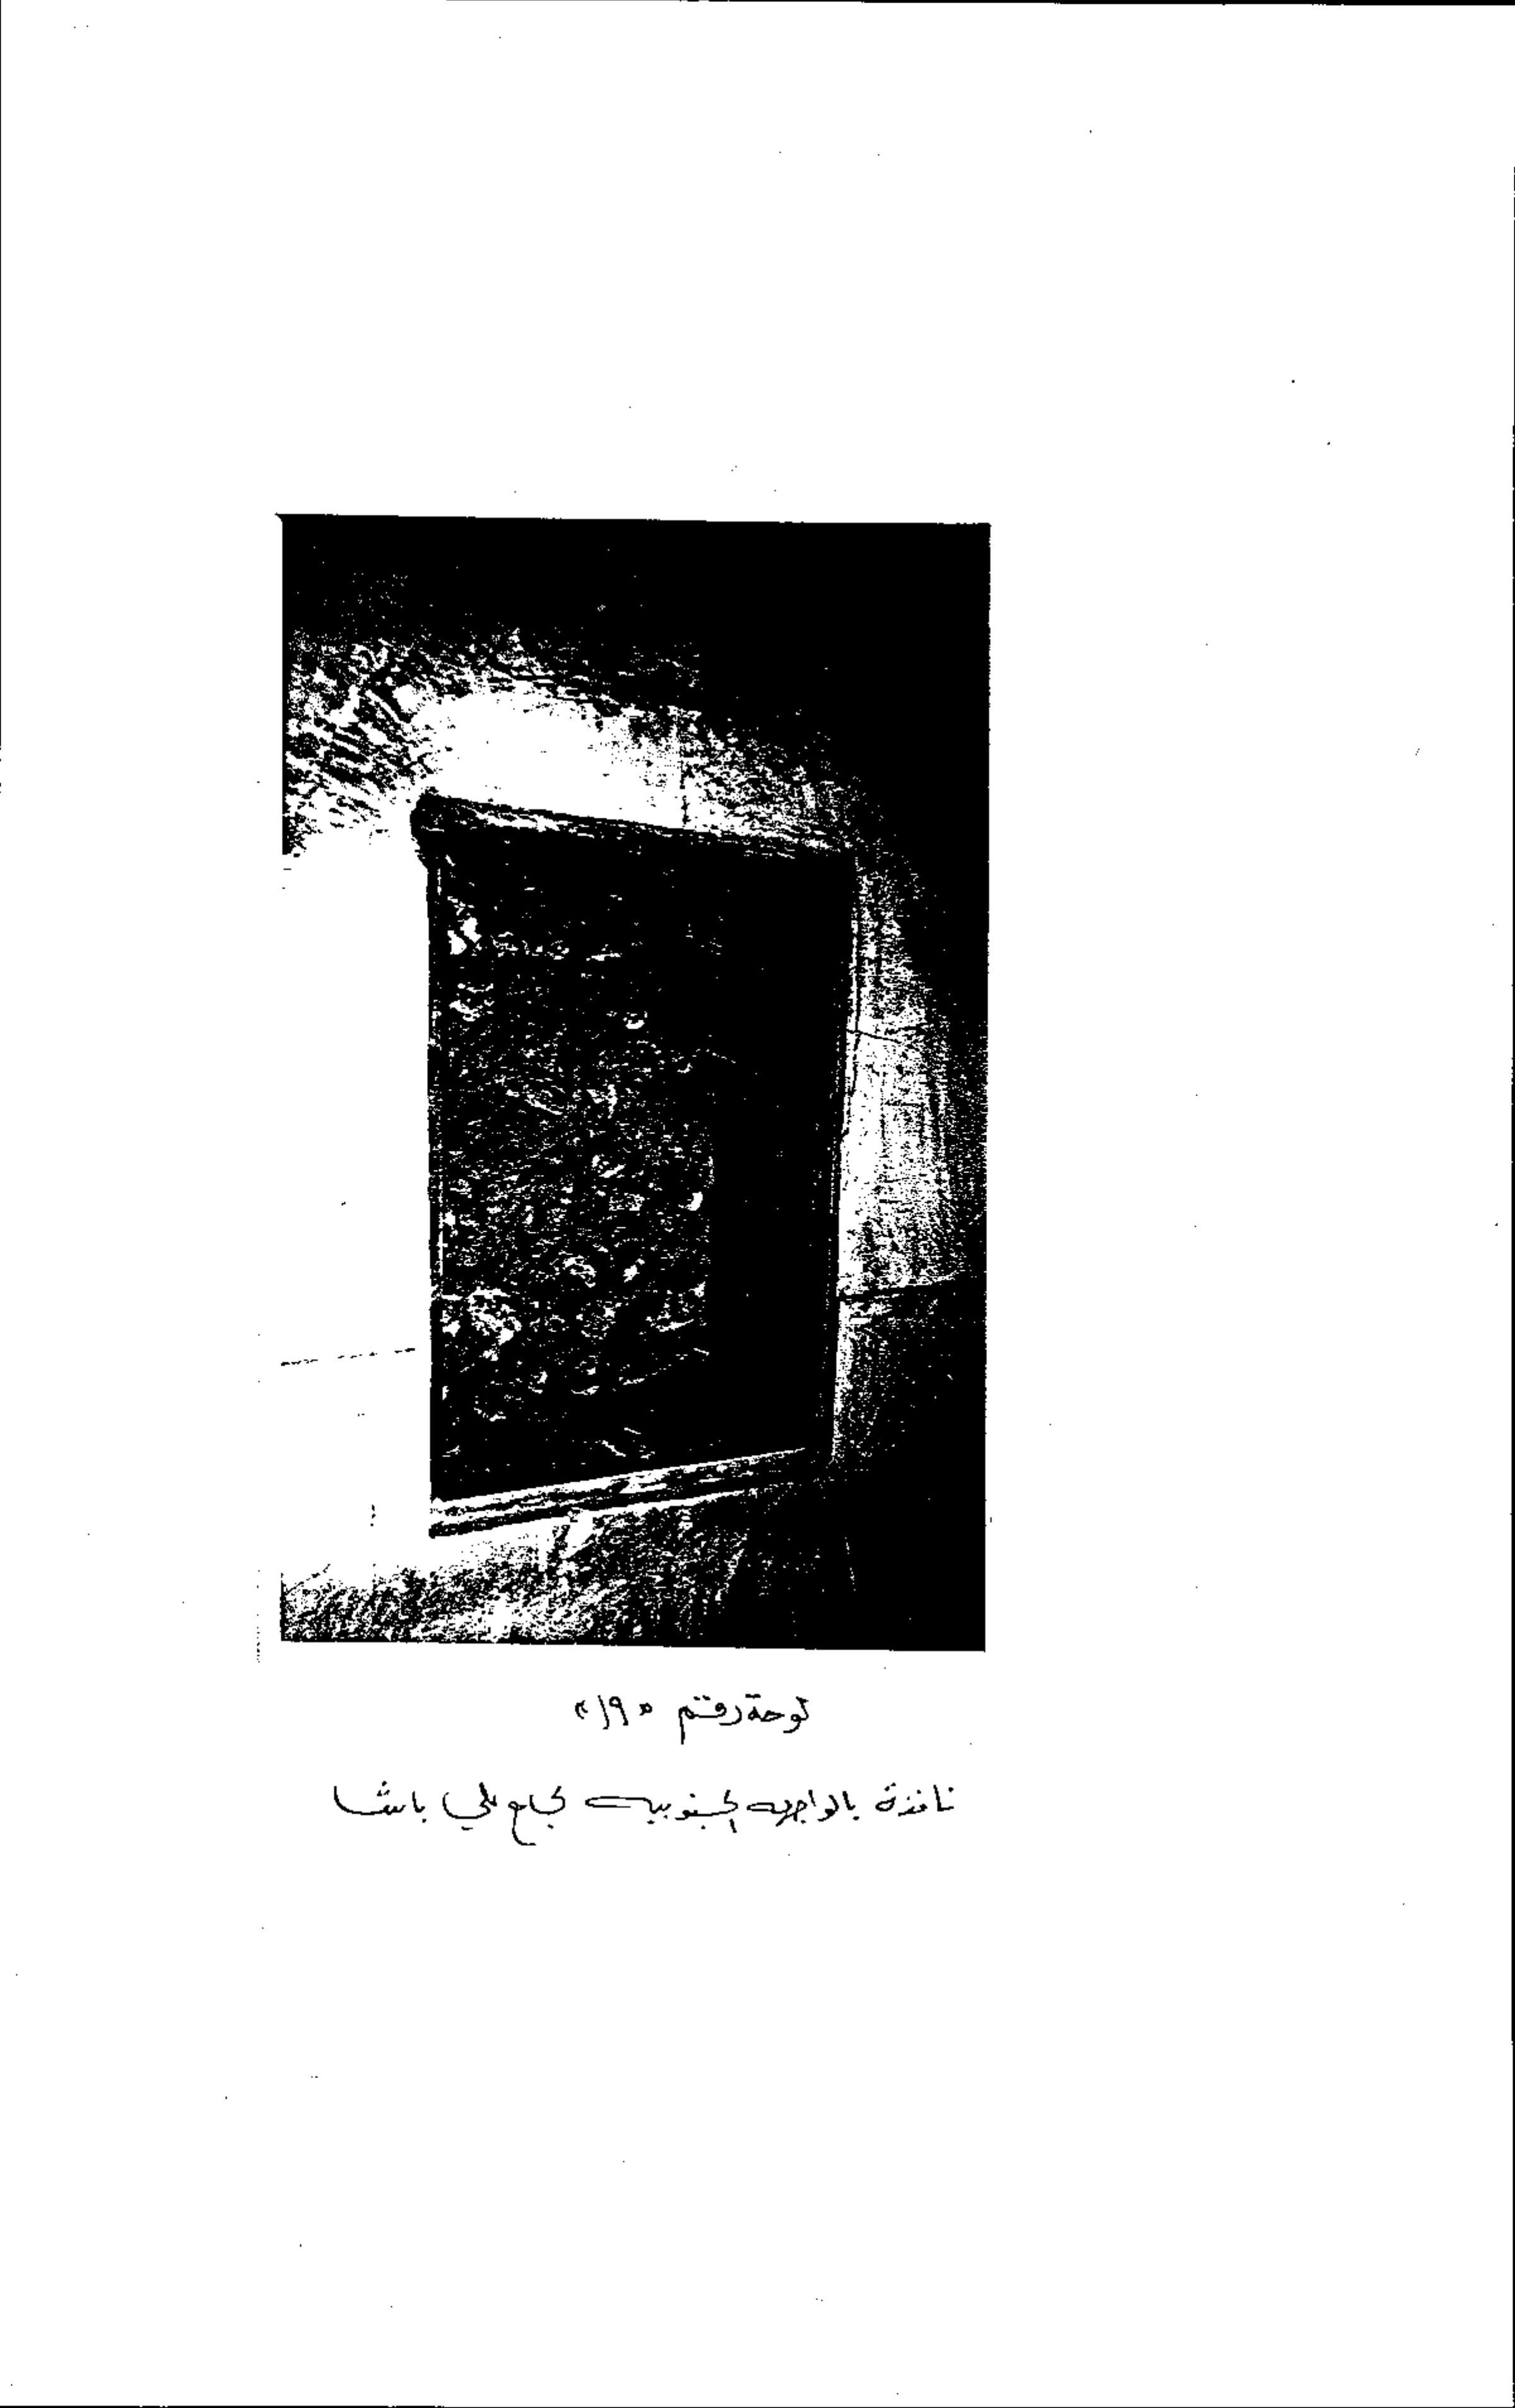 لوحة رقم «١٩»
نافذة بالواجهه الجنوبيه بجامع علي باشا